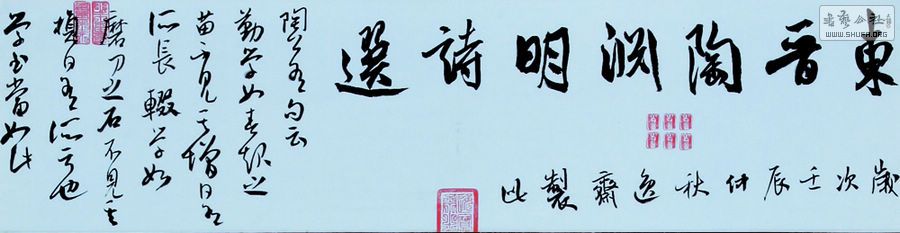 東晋陶渊明詩選
歲次壬辰仲秋逸齋製此
陶公有句云
勤学如春起之
苗不見其增日有
所長輟学如
磨刀之石不見其
損日有所亏也
学書當如此
書藝公社
WWW.SHUFA.ORG